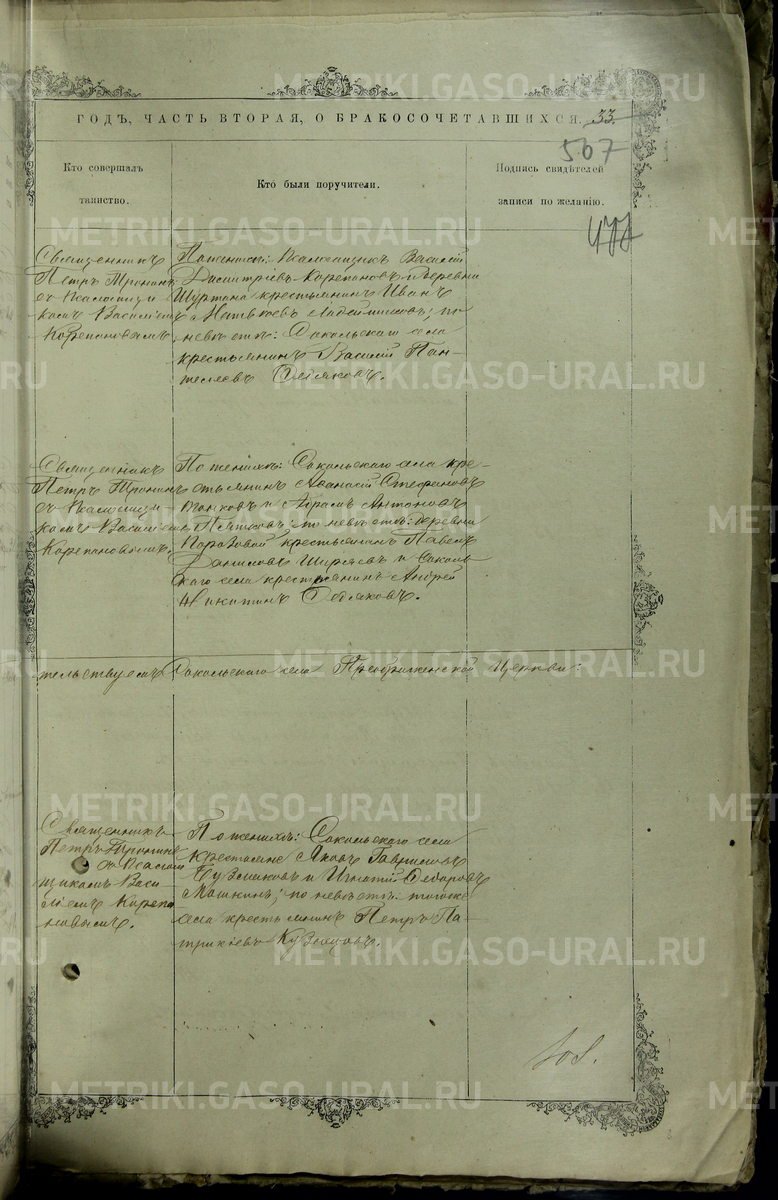 METRIKI.GASO-URAL.RU
ГОДЪ, ЧАСТЬ ВТОРАЯ, О БРАКОСОЧЕТАВШИХСЯ. 33.
507
Кто совершалъ таинство.
Кто были поручители.
Подпись свидѣтелей записи по желанію.
477
Священникъ
Петръ Тронинъ
съ Псаломщи
комъ Василіемъ
Корепановымъ.
По женихѣ: Псаломщикъ Василій
Димитріевъ Корепановъ и деревни
Шуртана крестьянинъ Иванъ
по
невѣстѣ: Сокольскаго села
крестьянинъ Василій Пан-
телеевъ
METRIKI.GASO-URAL.RU
Священникъ
Петръ Тронинъ
съ Псаломщи
комъ Василіемъ
Корепановымъ.
По женихѣ: Сокольскаго села кре-
стьянинъ Аѳанасій Стефановъ
и Абрамъ Антоновъ
по невѣстѣ: деревни
крестьянинъ Павелъ
Даниловъ Ширяевъ и Соколь
скаго села крестьянинъ Андрей
Никитинъ
METRIKI.GASO-URAL.RU
тельствуемъ Сокольскаго села Преображенской Церкви:
METRIKI.GASO-URAL.RU
Священникъ
Петръ Тронинъ
съ Псалом
щикомъ Васи
ліемъ Корепа
новымъ.
По женихѣ: Сокольскаго села
крестьяне Яковъ Гавриловъ
и Игнатій Ѳедоровъ
Машкинъ; по невѣстѣ: того же
села крестьянинъ Петръ Па-
трикіевъ Кузнецовъ.
METRIKI.GASO-URAL.RU
METRIKI.GASO-URAL.RU